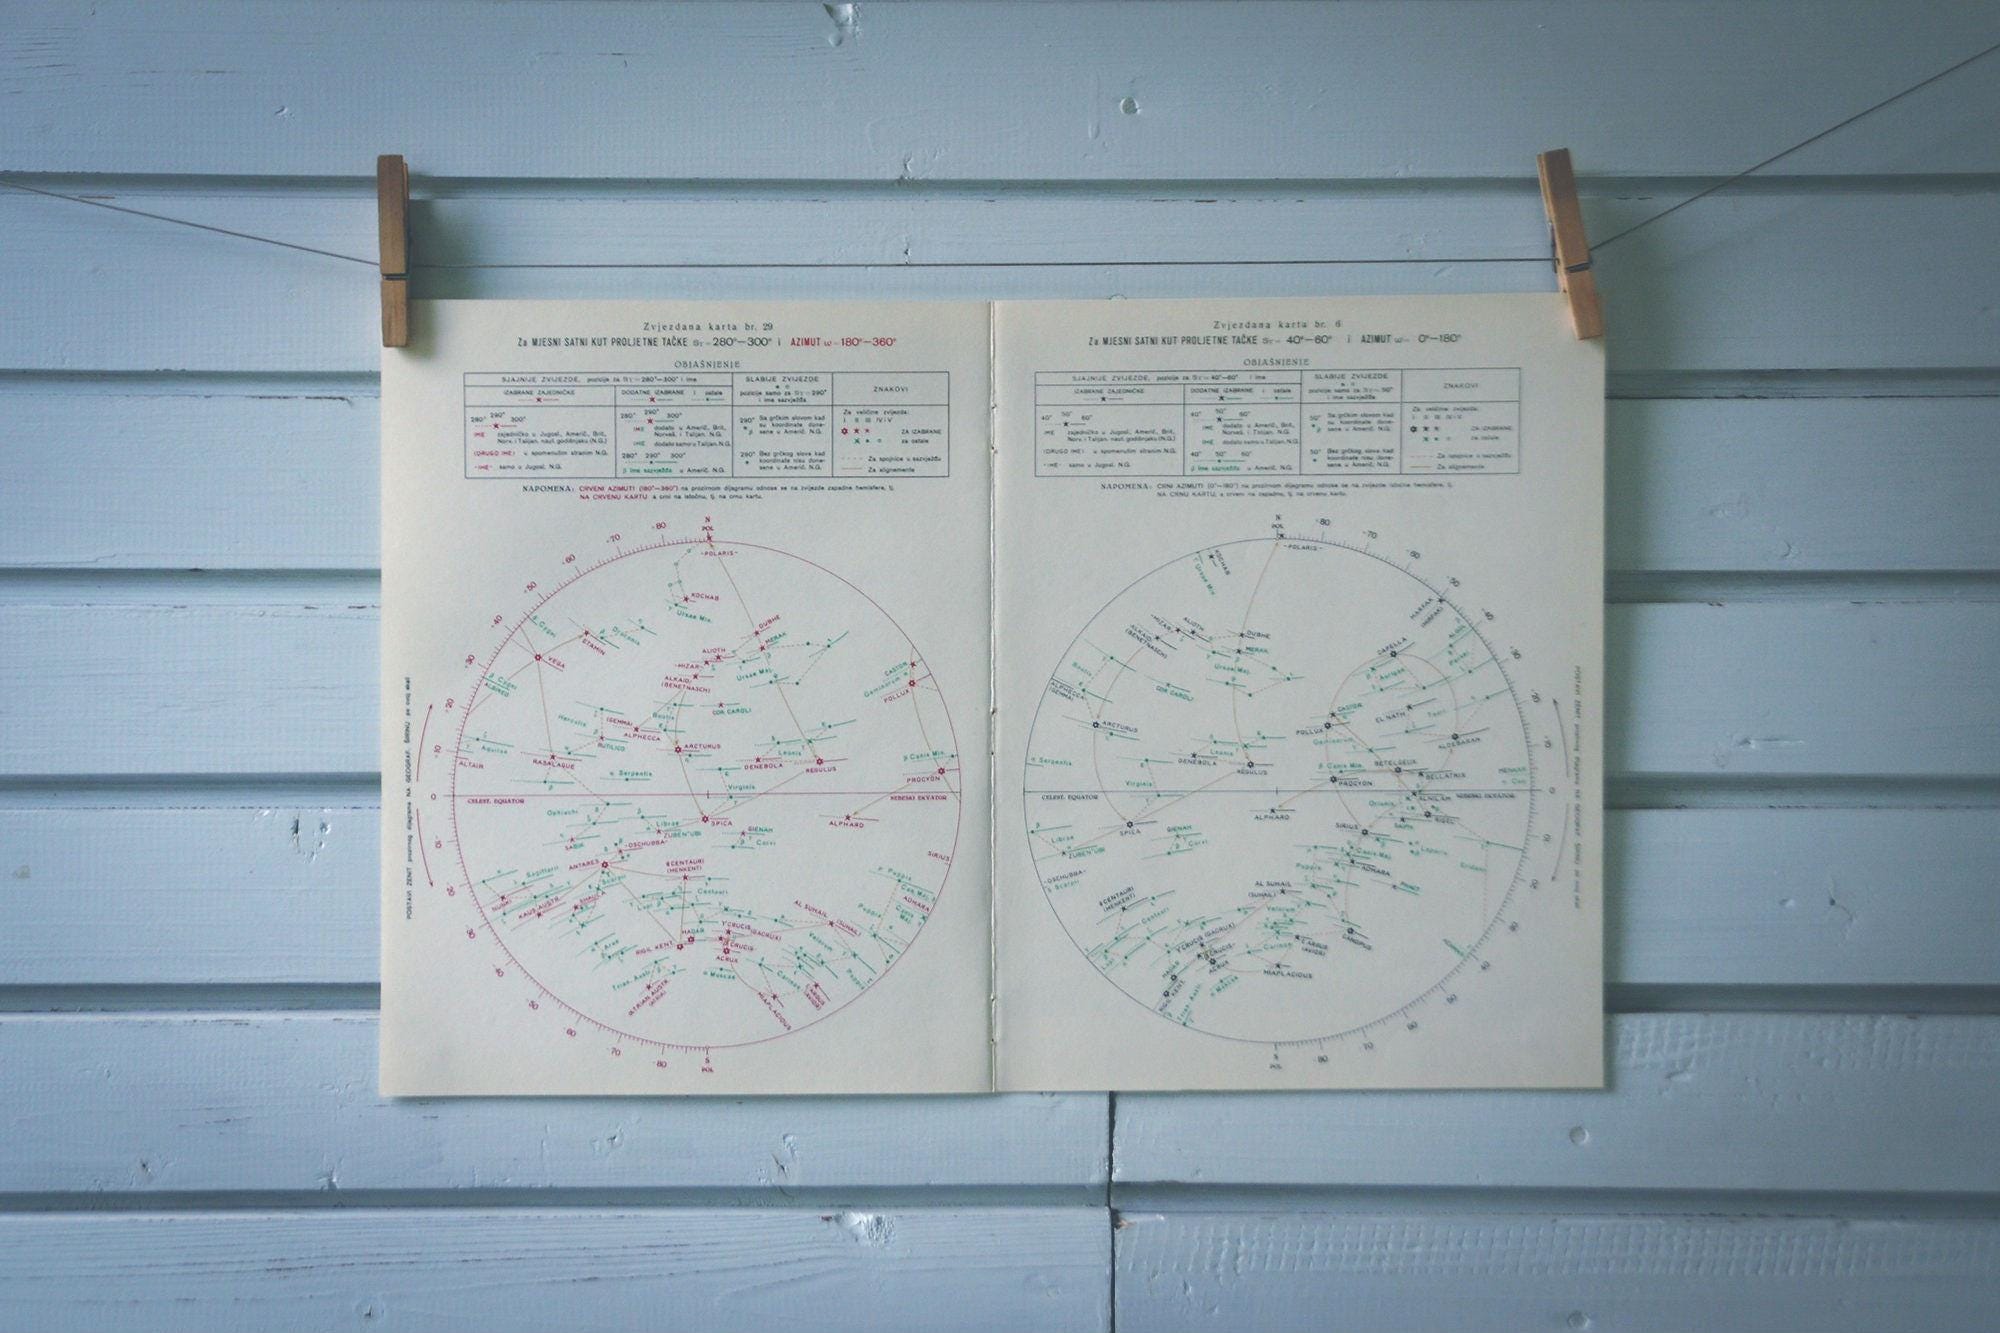 Zvjezdana karta br. 29
Za MJESNI SATNI KUT PROLJETNE TAČKE Sγ = 280°—300° i AZIMUT ω = 180°—360°
OBJAŠNJENJE
SJAJNIJE ZVIJEZDE, pozicije za Sγ = 280°—300° i ime
IZABRANE ZAJEDNIČKE
DODATNE IZABRANE i ostale
SLABIJE ZVIJEZDE
pozicije samo za Sγ = 290°
i ime sazviježđa
ZNAKOVI
280° 290° 300°
IME zajedničko u Jugosl., Američ., Brit.,
Norv. i Talijan. naut. godišnjaku (N.G.)
(DRUGO IME) u spomenutim stranim N.G.
-IME- samo u Jugosl. N.G.
280° 290° 300°
IME dodato u Američ., Brit.,
Norveš. i Talijan. N.G.
IME dodato samo u Talijan. N.G.
280° 290° 300°
β Ime sazviježđa u Američ. N.G.
290° Sa grčkim slovom kad
su koordinate done-
sene u Američ. N.G.
290° Bez grčkog slova kad
koordinate nisu done-
sene u Američ. N.G.
Za veličine zvijezda:
I II III IV i V
ZA IZABRANE
za ostale
Za spojnice u sazviježđu
Za alignemente
NAPOMENA: CRVENI AZIMUTI (180°—360°) na prozirnom dijagramu odnose se na zvijezde zapadne hemisfere, tj.
NA CRVENU KARTU a crni na istočnu, tj. na crnu kartu.
N
POL
-80
-70
-60
-50
-40
-30
-20
-10
0
10
20
30
40
50
60
70
80
-POLARIS-
KOCHAB
γ Ursae Min.
DUBHE
MERAK
β Cygni
ETAMIN
Draconis
VEGA
ALIOTH
-MIZAR-
ALKAID/
(BENETNASCH)
Ursae Maj.
CASTOR
Geminorum
POLLUX
β Cygni
ALBIREO
COR CAROLI
Herculis
(GEMMA)
ALPHECCA
Bootis
RUTILICO
ARCTURUS
Leonis
DENEBOLA
REGULUS
γ Aquilae
ALTAIR
RASALAGUE
α Serpentis
Virginis
β Canis Min.
PROCYON
CELEST. EQUATOR
NEBESKI EKVATOR
Ophiuchi
Librae
ZUBEN'UBI
SPICA
GIENAH
Corvi
ALPHARD
SABIK
-DSCHUBBA-
ANTARES
Scorpii
SIRIUS
Sagittarii
NUNKI
KAUS AUSTR.
SHAULA
θ CENTAURI
(MENKENT)
Centauri
Lupi
Puppis
Can. Maj.
ADHARA
Canis
Maj.
AL SUHAIL (SUHAIL)
Puppis
Arae
RIGIL KENT.
HADAR
γ CRUCIS (GACRUX)
β CRUCIS
ACRUX
Velorum
Trian. Austr.
α TRIAN. AUSTR.
(ATRIA)
α Muscae
Carinae
MIAPLACIDUS
ε ARGUS
(AVIOR)
Puppis
S
POL
POSTAVI ZENIT prozirnog dijagrama NA GEOGRAF. ŠIRINU po ovoj skali
Zvjezdana karta br. 6
Za MJESNI SATNI KUT PROLJETNE TAČKE Sγ = 40°—60° i AZIMUT ω = 0°—180°
OBJAŠNJENJE
SJAJNIJE ZVIJEZDE, pozicije za Sγ = 40°—60° i ime
IZABRANE ZAJEDNIČKE
DODATNE IZABRANE i ostale
SLABIJE ZVIJEZDE
pozicije samo za Sγ = 50°
i ime sazviježđa
ZNAKOVI
40° 50° 60°
IME zajedničko u Jugosl., Američ., Brit.,
Norv. i Talijan. naut. godišnjaku (N.G.)
(DRUGO IME) u spomenutim stranim N.G.
-IME- samo u Jugosl. N.G.
40° 50° 60°
IME dodato u Američ., Brit.,
Norveš. i Talijan. N.G.
IME dodato samo u Talijan. N.G.
40° 50° 60°
β Ime sazviježđa u Američ. N.G.
50° Sa grčkim slovom kad
su koordinate done-
sene u Američ. N.G.
50° Bez grčkog slova kad
koordinate nisu done-
sene u Američ. N.G.
Za veličine zvijezda:
I II III IV i V
ZA IZABRANE
za ostale
Za spojnice u sazviježđu
Za alignemente
NAPOMENA: CRNI AZIMUTI (0°—180°) na prozirnom dijagramu odnose se na zvijezde istočne hemisfere, tj.
NA CRNU KARTU, a crveni na zapadnu, tj. na crvenu kartu.
N
POL
-80
-70
-60
-50
-40
-30
-20
-10
0
10
20
30
40
50
60
70
80
-POLARIS-
KOCHAB
γ Ursae Min.
-MIZAR-
ALIOTH
ALKAID/
(BENETNASCH)
DUBHE
MERAK
Ursae Maj.
MARFAK
(MIRFAK)
ALGOL
Persei
CAPELLA
Aurigae
Bootis
ALPHECCA
(GEMMA)
COR CAROLI
ARCTURUS
CASTOR
POLLUX
Geminorum
EL NATH
Tauri
ALDEBARAN
Leonis
DENEBOLA
REGULUS
α Serpentis
Virginis
β Canis Min.
PROCYON
BETELGEUX
BELLATRIX
MENKAR
α Ceti
CELEST. EQUATOR
NEBESKI EKVATOR
Orionis
ALNILAM
RIGEL
SAIPH
ALPHARD
SIRIUS
SPICA
GIENAH
Corvi
Librae
ZUBEN'UBI
-DSCHUBBA-
Scorpii
Canis Maj.
ADHARA
Puppis
Leporis
PHAET
Eridani
θ CENTAURI
(MENKENT)
Centauri
AL SUHAIL
(SUHAIL)
Velorum
Lupi
γ CRUCIS (GACRUX)
β CRUCIS
ACRUX
HADAR
RIGIL KENT.
Carinae
ε ARGUS
(AVIOR)
CANOPUS
MIAPLACIDUS
α Muscae
Trian. Austr.
S
POL